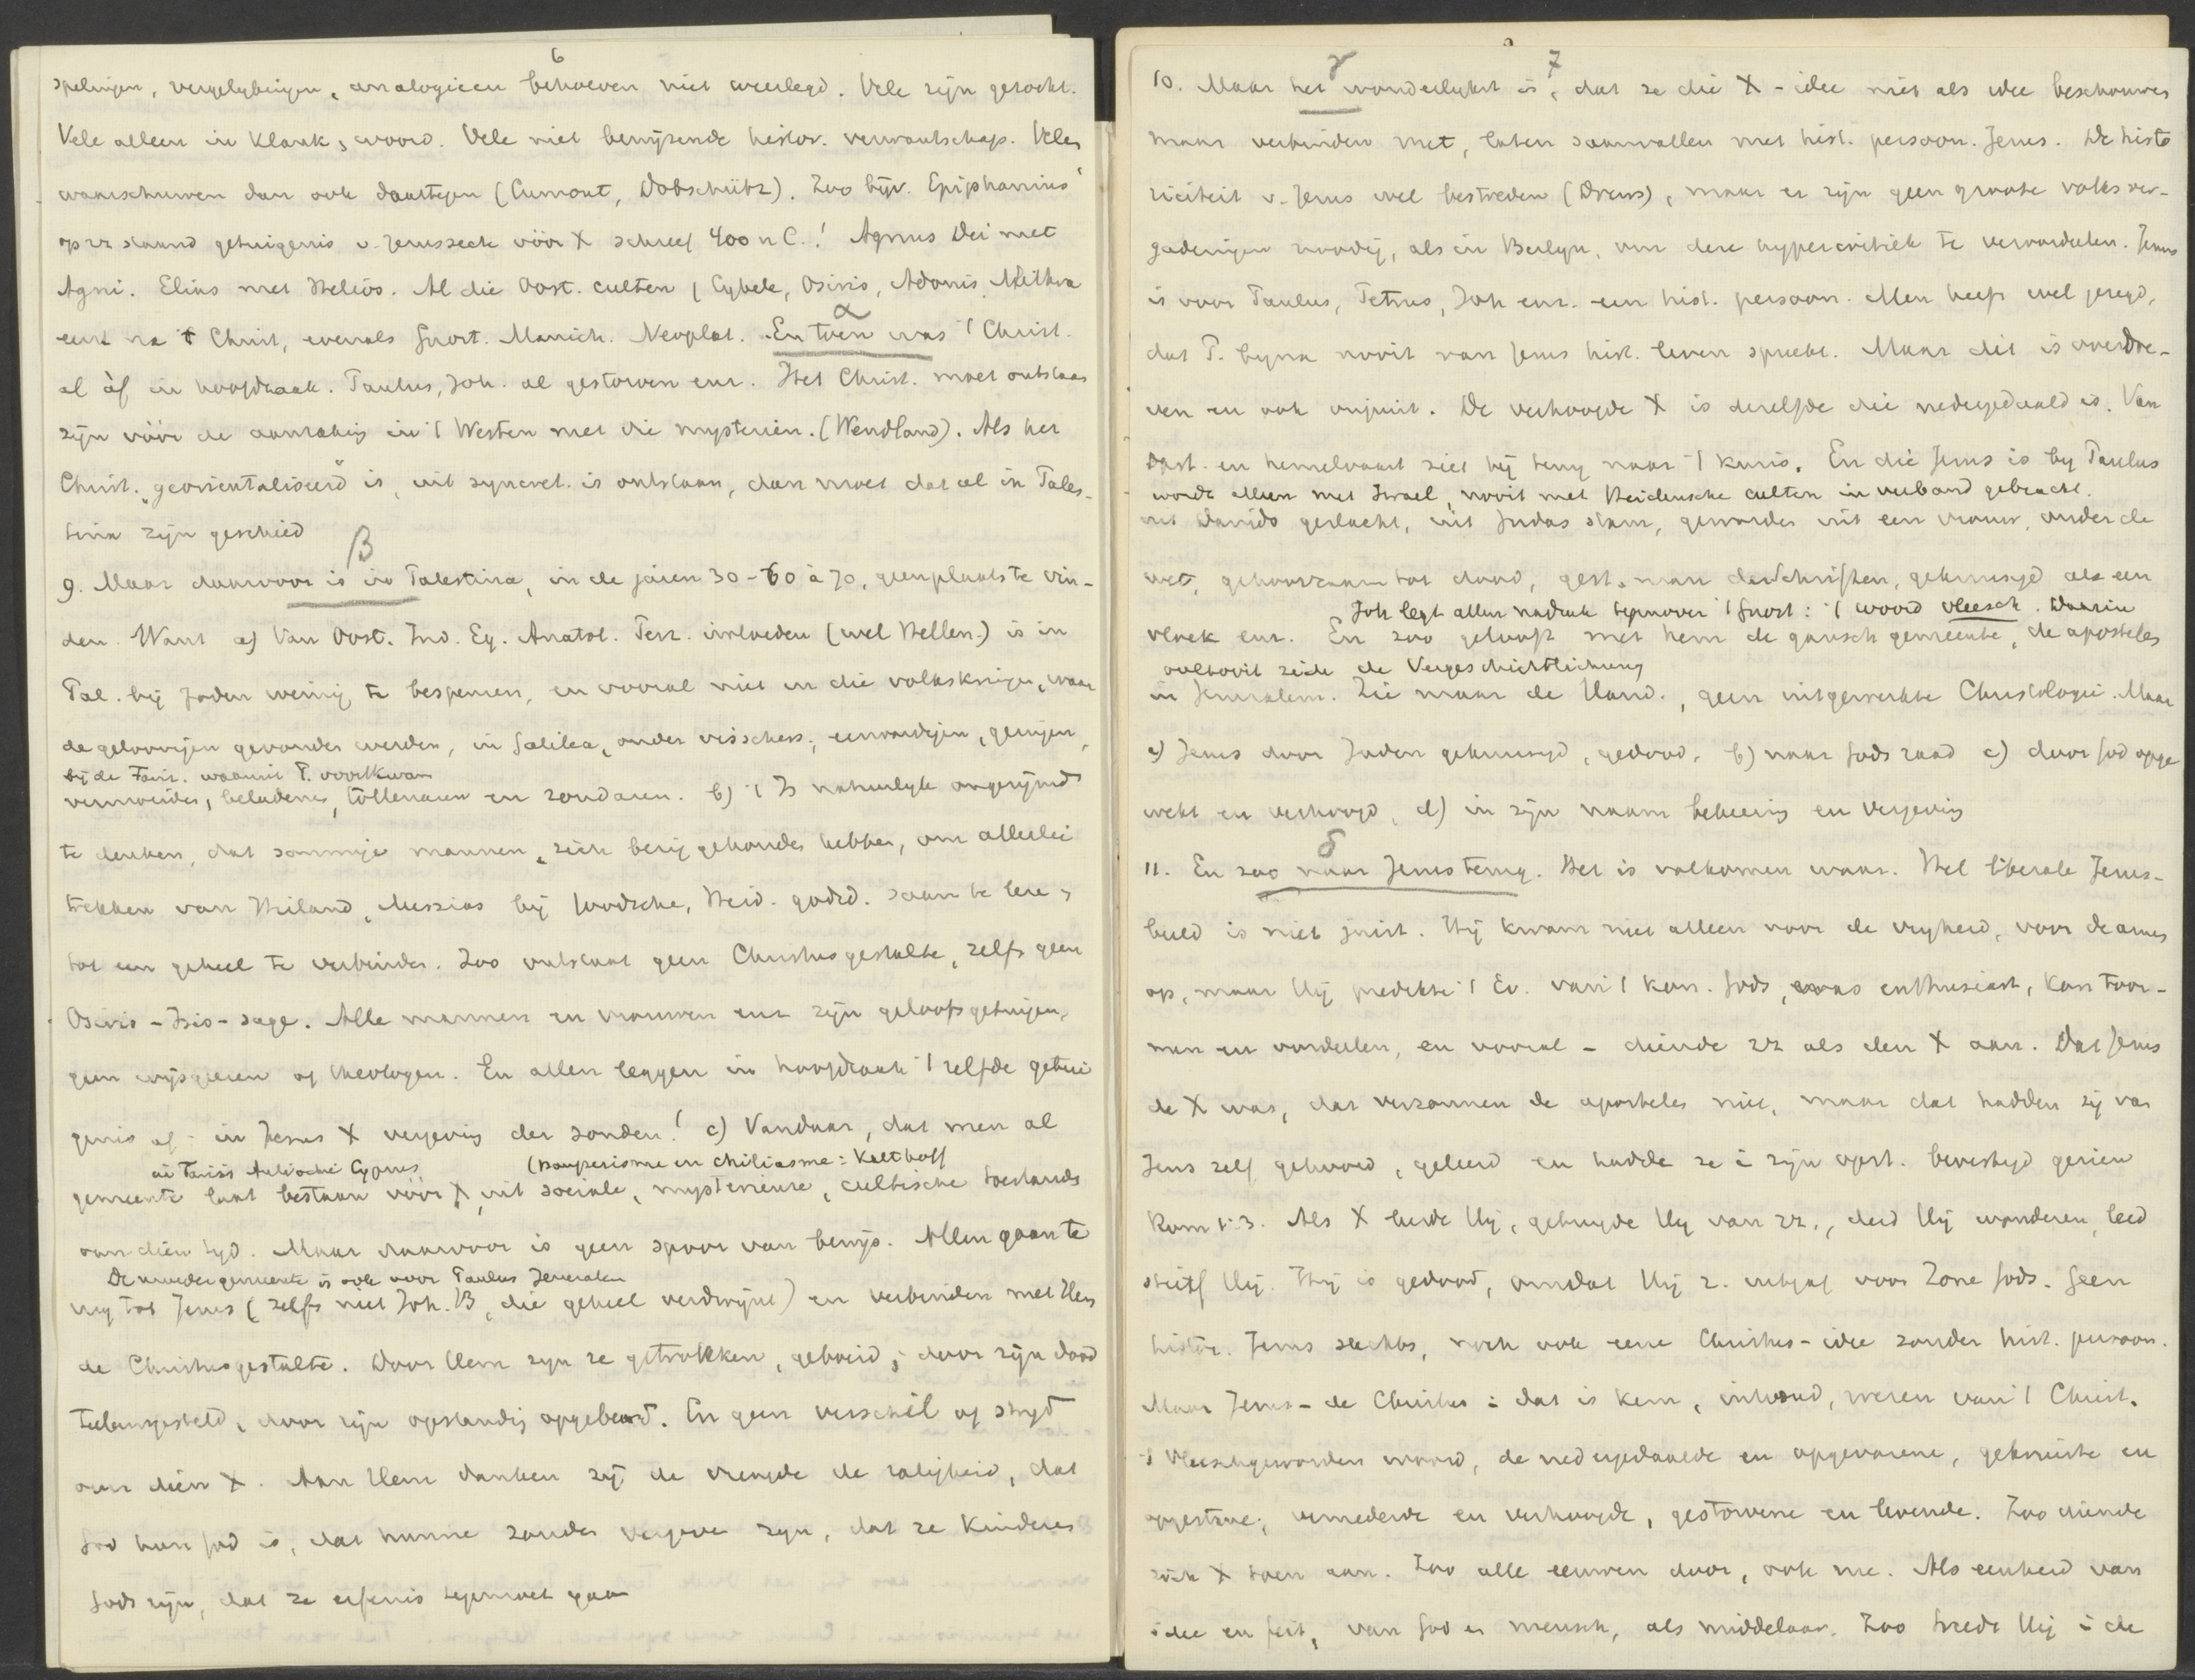 6
spelingen, vergelykingen, analogieen behoeven niet weerlegd. Vele zijn gezocht.
Vele alleen in klank, woord. Vele niet bewijzende histor. verwantschap. Velen
waarschuwen dan ook daartegen (Cumont, Dobschütz). Zoo bijv. Epiphanius'
op zz staand getuigenis v. Jesussecte vóór X schreef 400 n C.! Agnus Dei met
Agni. Elias met Helios. Al die Oost. culten, Cybele, Osiris, Adonis, Mithra
eerst na Christ, evenals Gnost. Manich. Neoplat.
α
En toen was 't Christ.
al àf in hoofdzaak. Paulus, Joh. al gestorven enz. Het Christ. moet ontstaan
zijn vóór de aanraking in 't Westen met die mysterien. (Wendland). Als het
Christ. "georientaliseerd" is, uit syncret. is ontstaan, dan moet dat al in Pales-
tina zijn geschied
β
9. Maar daarvoor is in Palestina, in de jaren 30-60 à 70, geen plaats te vin-
den. Want a) Van Oost. Ind. Eg. Anatol. Perz. invloeden (wel Hellen.) is in
Pal. bij Joden weinig te bespeuren, en vooral niet in die volkskringen, waar
de geloovigen gevonden werden, in Galilea, onder visschers, eenvoudigen, geringen,
bij de Fariz. waaruit P. voortkwam
vermoeiden, beladenen, tollenaren en zondaren. b) 't Is natuurlyk ongerijmd
te denken, dat sommige mannen zich bezig gehouden hebben, om allerlei
trekken van Heiland, Messias bij Joodsche, Heid. godsd. saam te lezen,
tot een geheel te verbinden. Zoo ontstaat geen Christusgestalte, zelfs geen
Osiris-Isis-sage. Alle mannen en vrouwen enz zijn geloofsgetuigen,
geen wijsgeeren of theologen. En allen leggen in hoofdzaak 't zelfde getui
genis af: in Jezus X vergeving der zonden! c) Vandaar, dat men al
in Tarsis Antiochie Cyprus (pauperisme en chiliasme: Kalthoff
gemeente laat bestaan vóór X, uit sociale, mysterieuze, cultische toestands
van dien tyd. Maar daarvoor is geen spoor van bewijs. Allen gaan te
De moedergemeente is ook voor Paulus Jeruzalem
rug tot Jezus (zelfs niet Joh. B, die geheel verdwijnt) en verbinden met Hem
de Christusgestalte. Door Hem zyn ze getrokken, geboeid, door zijn dood
teleurgesteld, door zijn opstanding opgebeurd. En geen verschil of strijd
over dien X. Aan Hem danken zij de vreugde de zaligheid, dat
God hun God is, dat hunne zonden vergeven zyn, dat ze kinderen
Gods zijn, dat ze erfenis tegemoet gaan
7
γ
10. Maar het wonderlykst is, dat ze die X-idee niet als idee beschouwen
maar verbinden met, laten saamvallen met hist. persoon. Jezus. De histo
riciteit v. Jezus wel bestreden (Drews), maar er zijn geen groote volksver-
gaderingen noodig, als in Berlijn, om deze hypercritiek te veroordeelen. Jezus
is voor Paulus, Petrus, Joh enz. een hist. persoon. Men heeft wel gezegd,
dat P. byna nooit van Jezus hist. leven spreekt. Maar dit is overdre-
ven en ook onjuist. De verhoogde X is dezelfde die nedergedaald is. Van
opst. en hemelvaart ziet hij terug naar 't kruis. En die Jezus is by Paulus
wordt alleen met Israel, nooit met Heidensche culten in verband gebracht.
uit Davids geslacht, uit Judas stam, geworden uit een vrouw, onder de
wet, gehoorzaam tot dood, gest. naar de Schriften, gekruisigd als een
Joh legt allen nadruk tegenover 't Gnost: 't woord vleesch. Waarin
vloek enz. En zoo gelooft met hem de gansch gemeente, de apostelen
ooltooit zeide de Vergeschichtlichung
in Jeruzalem. Zie maar de Hand., geen uitgewerkte Christologie. Maar
a) Jezus door Joden gekruisigd, gedood, b) naar Gods raad c) door God opge
wekt en verhoogd, d) in zijn naam bekeering en vergeving
δ
11. En zoo naar Jezus terug. Het is volkomen waar. Het liberale Jezus-
beeld is niet juist. Hij kwam niet alleen voor de vryheid, voor de armen
op, maar Hij predikte 't Ev. van 't Kon. Gods, was enthusiast, kon toor-
nen en oordeelen, en vooral - diende zz als den X aan. Dat Jezus
de X was, dat verzonnen de apostelen niet, maar dat hadden zij van
Jezus zelf gehoord, geleerd en hadde ze i zijn opst. bevestigd gezien
Rom 1:3. Als X leerde Hij, getuigde Hy van zz., deed Hij wonderen, leed
stierf Hij. Hij is gedood, omdat Hij z. uitgaf voor Zone Gods. Geen
histor. Jezus slechts, noch ook eene Christus-idee zonder hist. persoon.
Maar Jezus-de Christus: dat is kern, inhoud, wezen van 't Christ.
't Vleeschgeworden woord, de nedergedaalde en opgevarene, gekruiste en
opgestane, vernederde en verhoogde, gestorvene en levende. Zoo diende
zich X toen aan. Zoo alle eeuwen door, ook nu. Als eenheid van
idee en feit, van God en mensch, als middelaar. Zoo treedt Hij i de